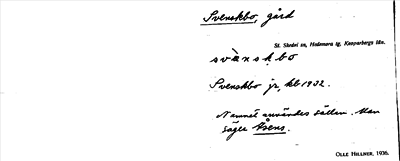 Svenskbo, gård
St. Skedvi sn, Hedemora tg, Kopparbergs län.
svànskbo
Svenskbo jr, kb 1932.
Namnet användes sällan. Man
säger Åsens.
OLLE HILLNER, 1936.